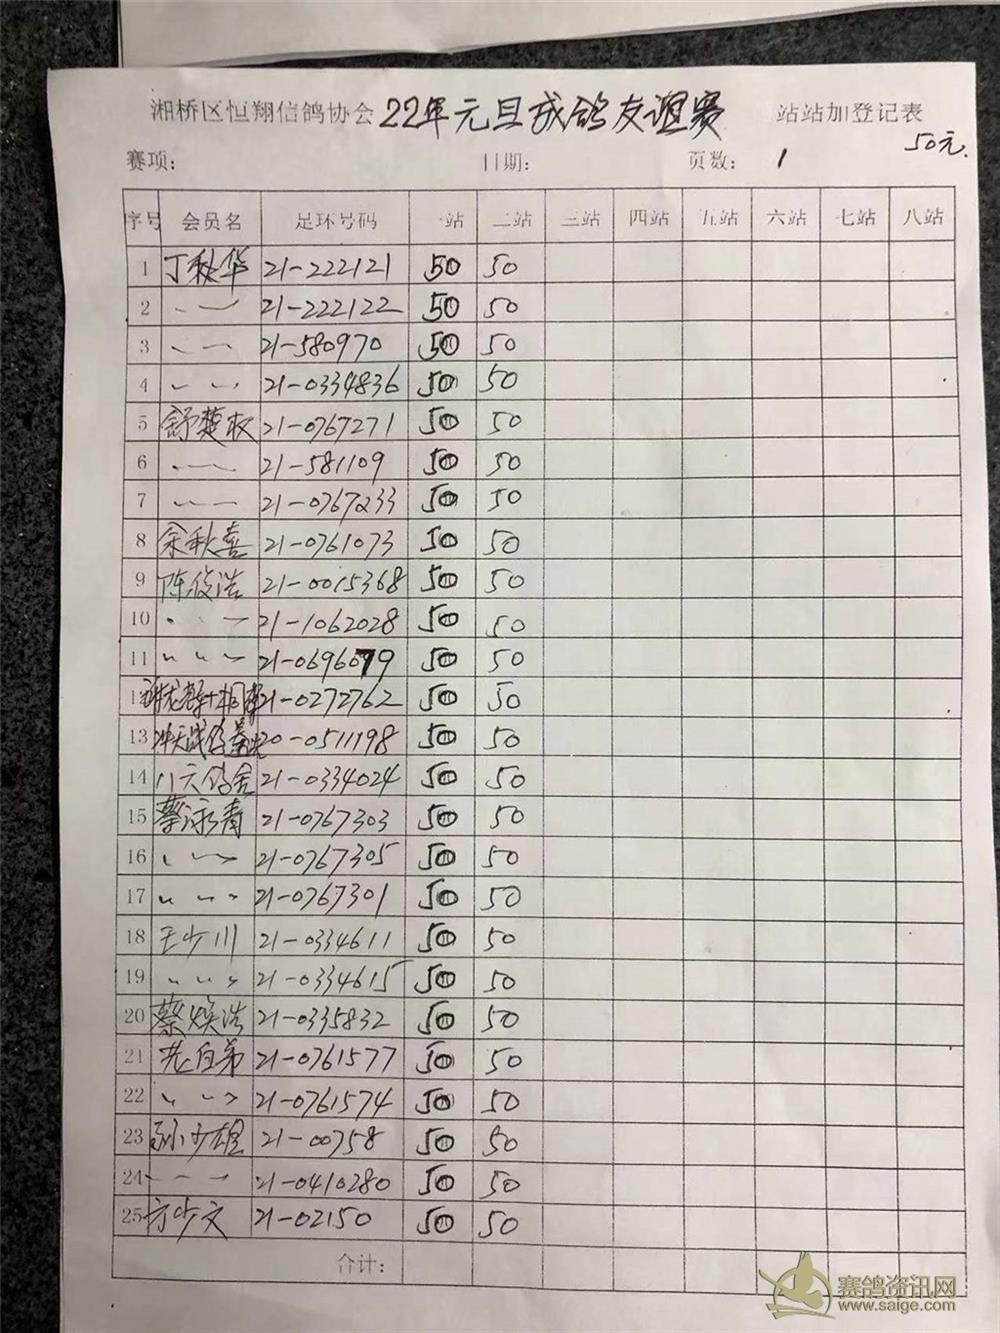 湘桥区恒翔信鸽协会 22年元旦成鸽友谊赛 站站加登记表
50元.
赛项: 日期: 页数: 1
序号 会员名 足环号码 一站 二站 三站 四站 五站 六站 七站 八站
1 丁秋华 21-222121 50 50
2 21-222122 50 50
3 21-580970 50 50
4 21-0334836 50 50
5 舒楚权 21-0767271 50 50
6 21-581109 50 50
7 21-0767233 50 50
8 余秋喜 21-0761073 50 50
9 陈俊浩 21-0015368 50 50
10 21-1062028 50 50
11 21-0696079 50 50
12 21-0272762 50 50
13 20-0511198 50 50
14 八六鸽舍 21-0334024 50 50
15 蔡泳青 21-0767303 50 50
16 21-0767305 50 50
17 21-0767301 50 50
18 王少川 21-0334611 50 50
19 21-0334615 50 50
20 蔡焕浩 21-0335832 50 50
21 21-0761577 50 50
22 21-0761574 50 50
23 孙少雄 21-00758 50 50
24 21-0410280 50 50
25 方少文 21-02150 50 50
合计:
赛鸽资讯网
www.saige.com